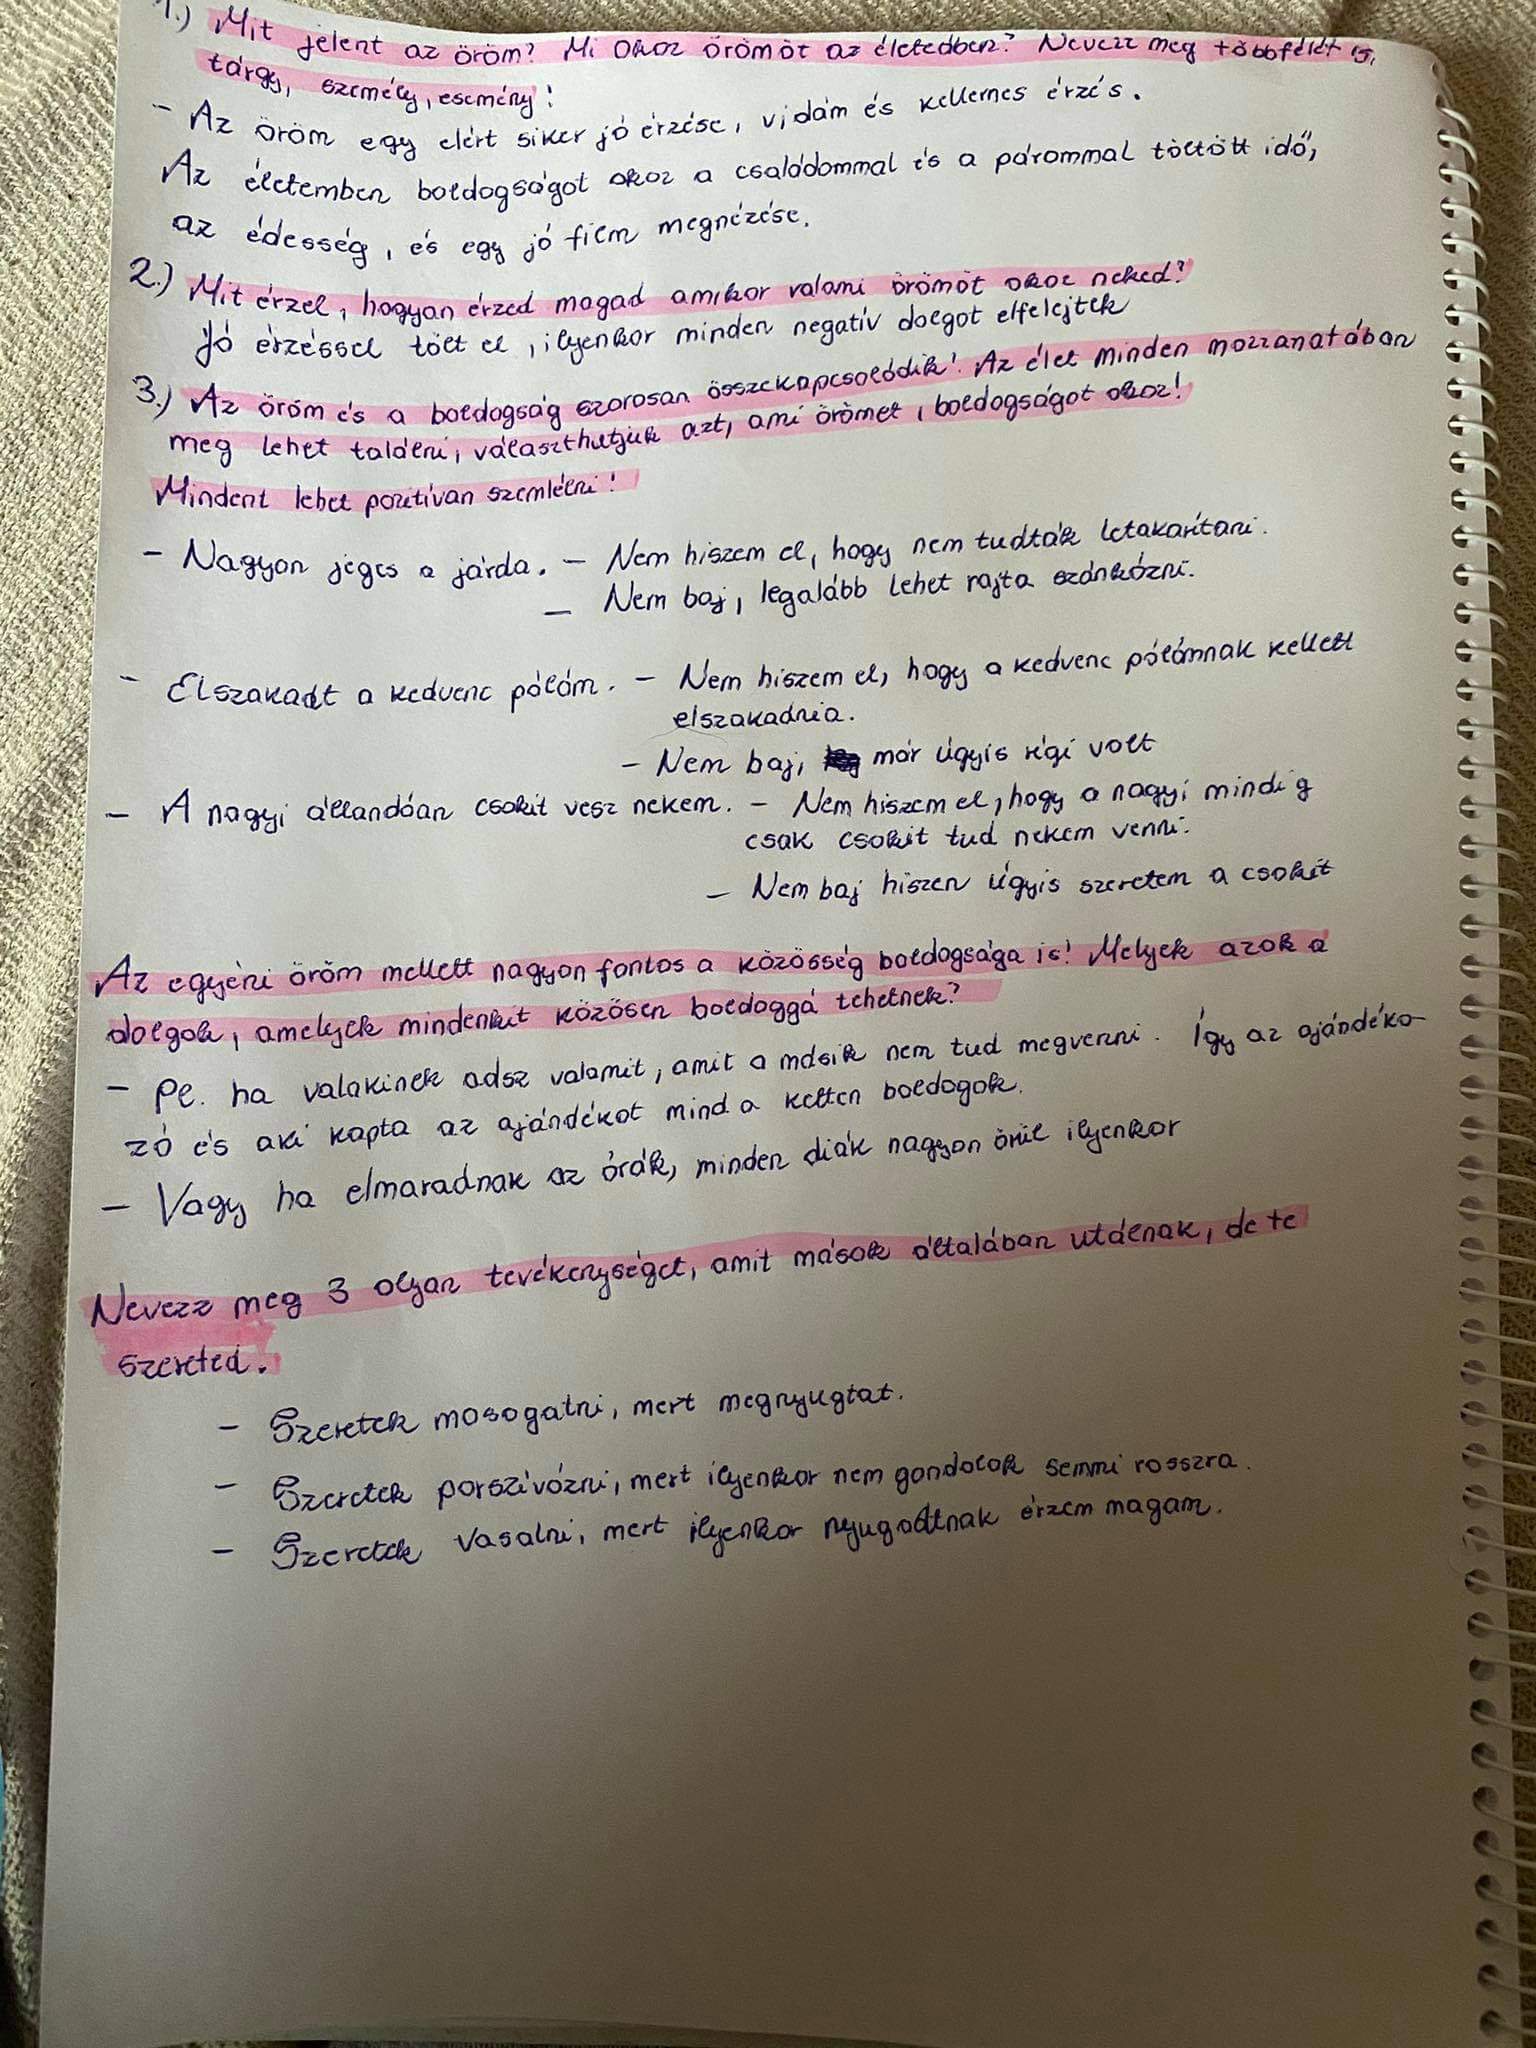 1.) Mit jelent az öröm? Mi okoz örömöt az életedben? Nevezz meg többfélét is,
tárgy, személy, esemény!
- Az öröm egy elért siker jó érzése, vidám és kellemes érzés.
Az életemben boldogságot okoz a családommal és a párommal töltött idő,
az édesség, és egy jó film megnézése.
2.) Mit érzel, hogyan érzed magad amikor valami örömöt okoz neked?
Jó érzéssel tölt el, ilyenkor minden negatív dolgot elfelejtek
3.) Az öröm és a boldogság szorosan összekapcsolódik! Az élet minden mozzanatában
meg lehet találni, választhatjuk azt, ami örömet, boldogságot okoz!
Mindent lehet pozitívan szemlélni!
- Nagyon jeges a járda. - Nem hiszem el, hogy nem tudták letakarítani.
- Nem baj, legalább lehet rajta szánkózni.
- Elszakadt a kedvenc pólóm. - Nem hiszem el, hogy a kedvenc pólómnak kellett
elszakadnia.
- Nem baj, már úgyis régi volt
- A nagyi állandóan csokit vesz nekem. - Nem hiszem el, hogy a nagyi mindig
csak csokit tud nekem venni.
- Nem baj hiszen úgyis szeretem a csokit
Az egyéni öröm mellett nagyon fontos a közösség boldogsága is! Melyek azok a
dolgok, amelyek mindenkit közösen boldoggá tehetnek?
- Pl. ha valakinek adsz valamit, amit a másik nem tud megvenni. Így az ajándéko-
zó és aki kapta az ajándékot mind a ketten boldogok.
- Vagy ha elmaradnak az órák, minden diák nagyon örül ilyenkor
Nevezz meg 3 olyan tevékenységet, amit mások általában utálnak, de te
szereted.
- Szeretek mosogatni, mert megnyugtat.
- Szeretek porszívózni, mert ilyenkor nem gondolok semmi rosszra.
- Szeretek vasalni, mert ilyenkor nyugodtnak érzem magam.